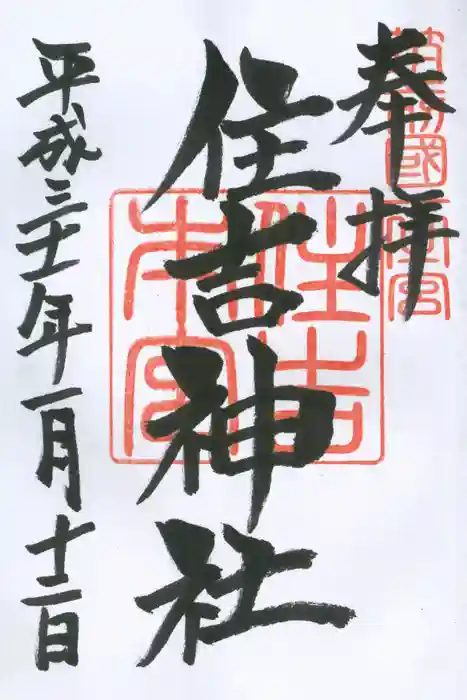 奉拝
筑前國一宮
住吉神社
住吉
本宮
平成三十一年一月十二日